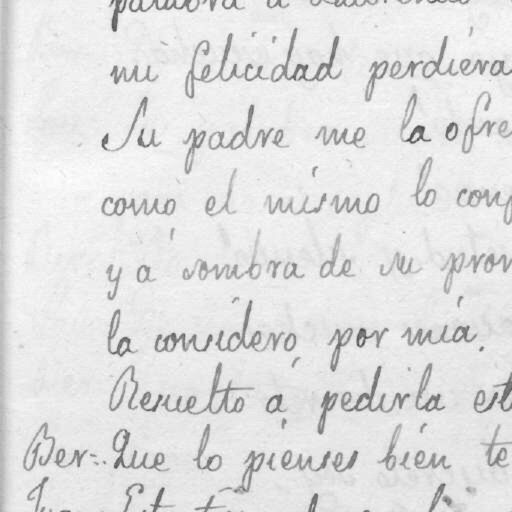 palabra a
mi felicidad perdiéra
Su padre me la ofre
comó el mísmo lo conf
y á sombra de su prom
la consídero, por miá.
Resuelto á pedirla est
Ber-. Que lo piénses bién te